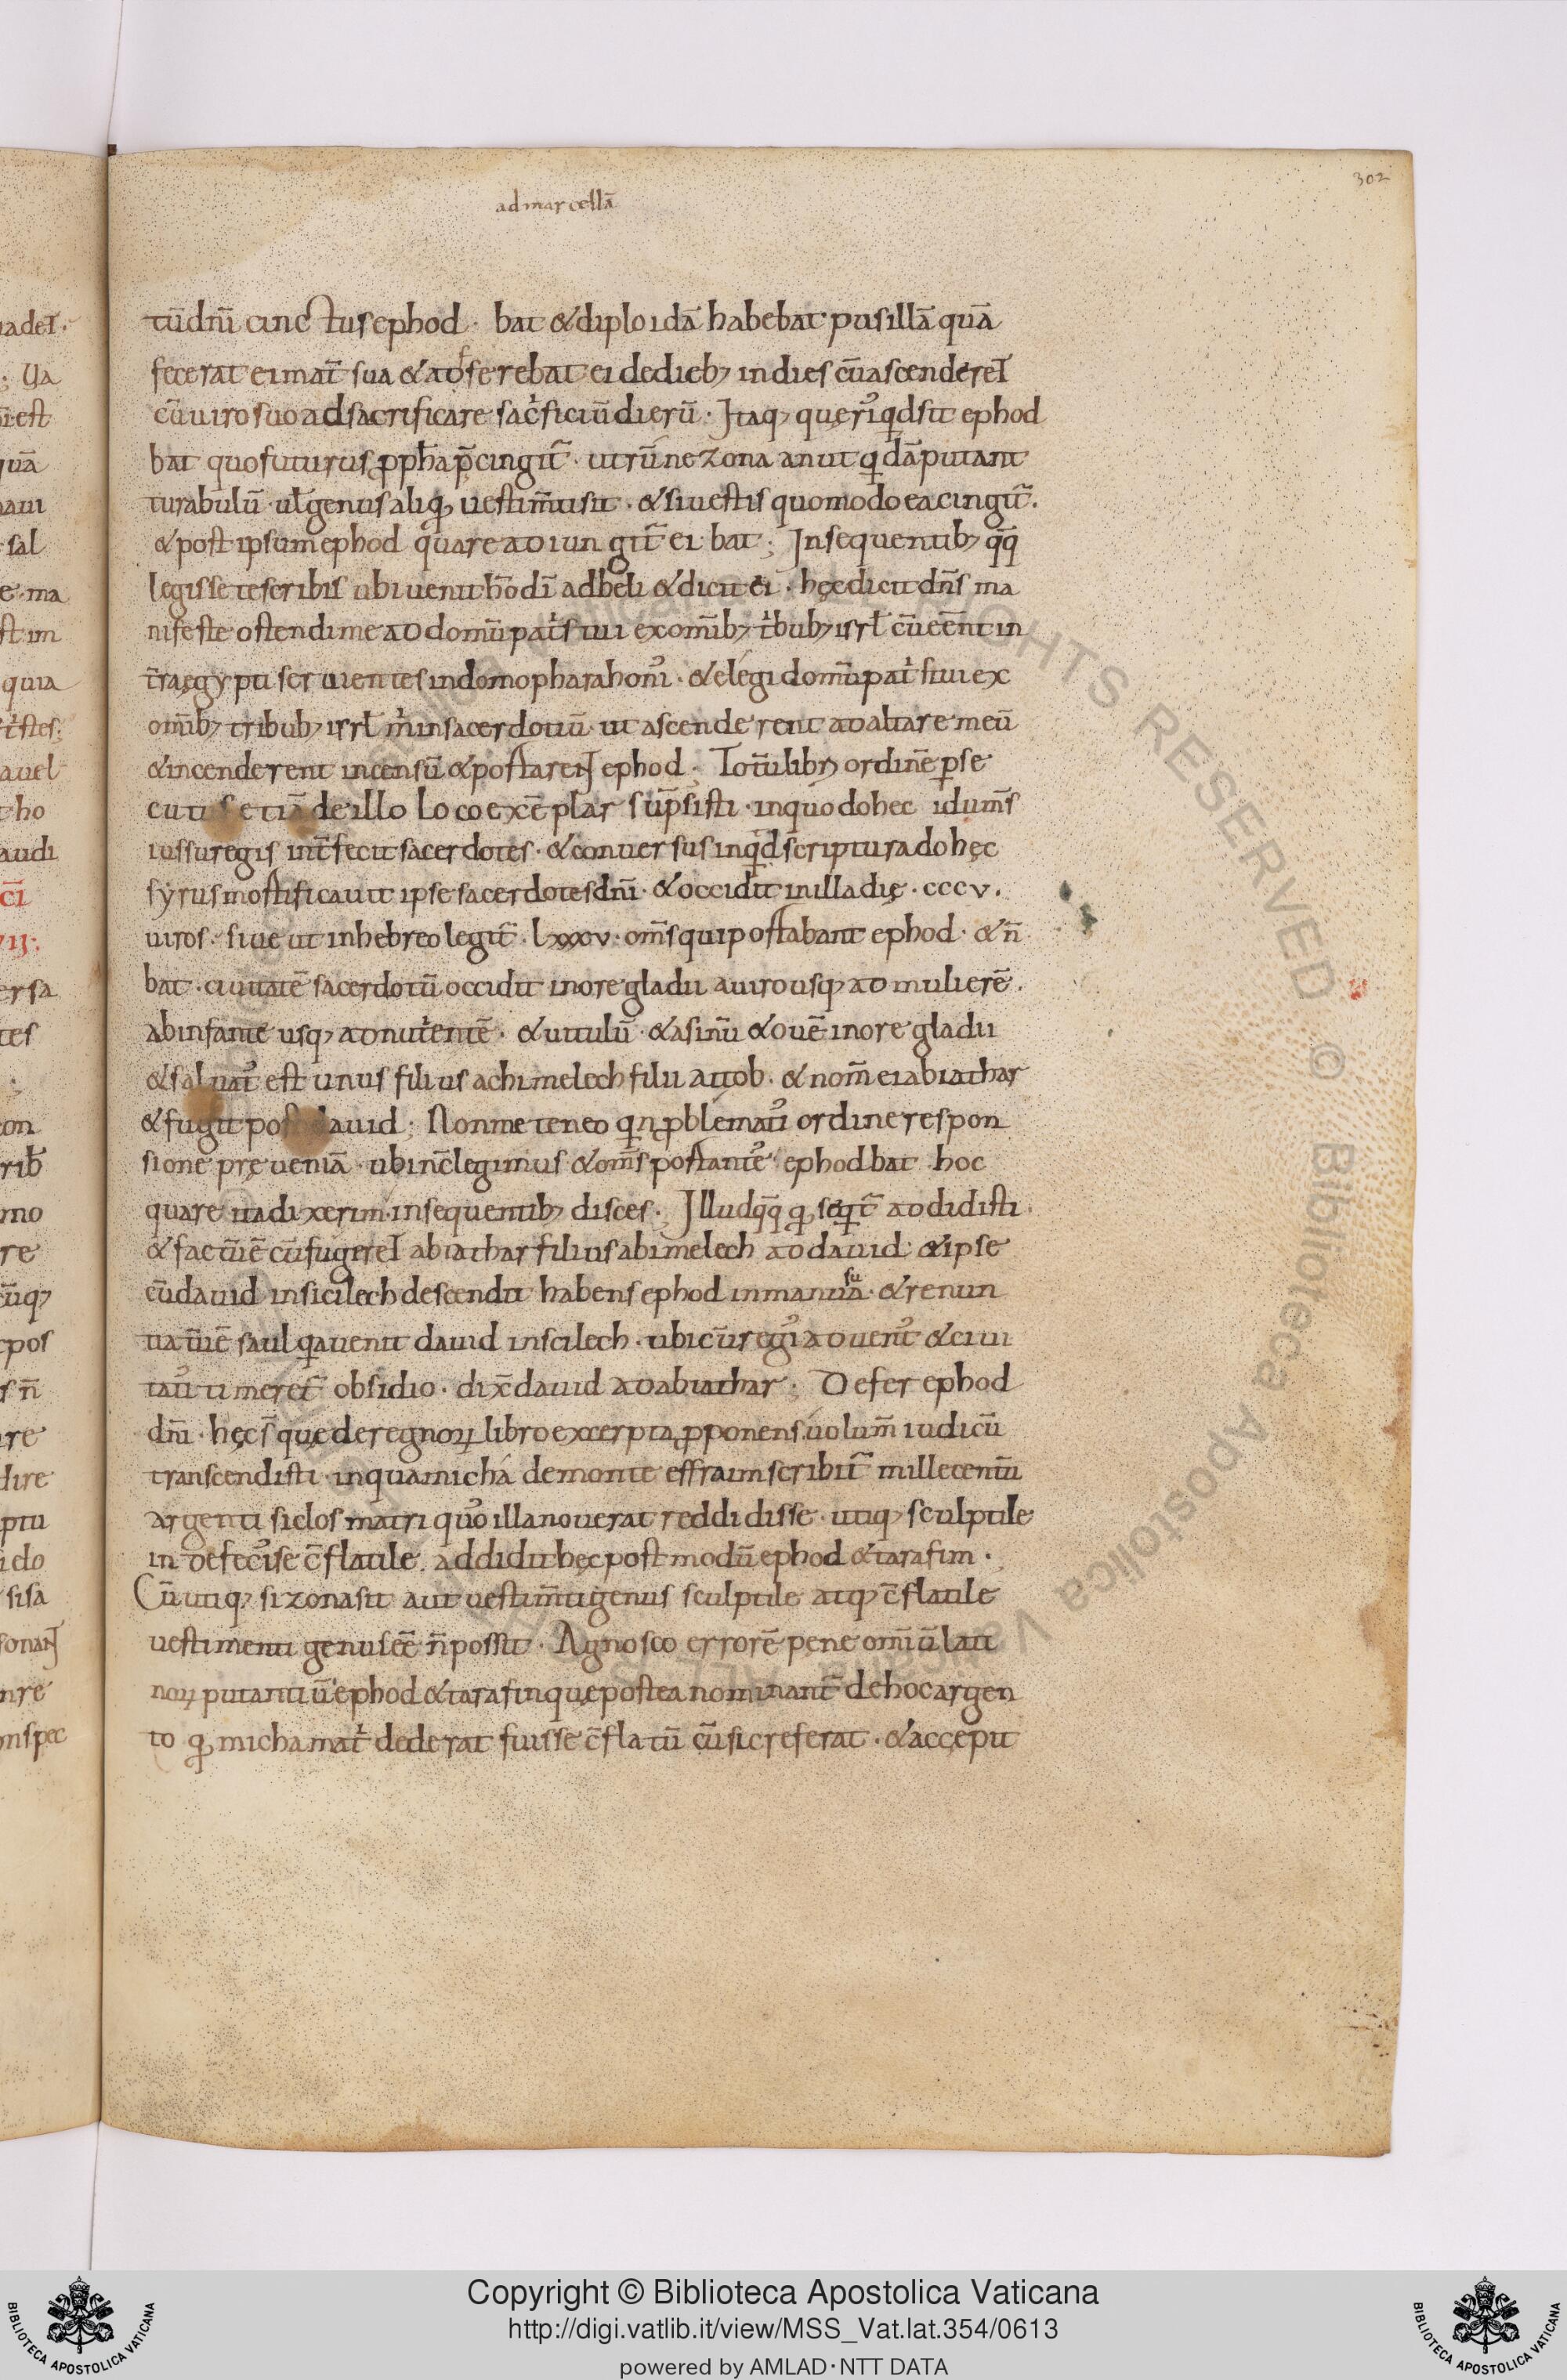 302
ad marcellā
tū dn̄i cinctus ephod · bat & diploidā habebat pusillā quā
fecerat ei mat̄ sua & adferebat ei de dieb; in dies cū ascenderet
cū uiro suo ad sacrificare sac̍ficiū dierū · Itaq; querı̉ qd sit ephod
bat quo futurus ꝓpha p̄cingit̄ · utrūne zona an ut qdā putant
turabulū · ul̄ genus aliqđ uestim̄ti sit · & si uestis quomodo ea cingit̄ ·
& post ipsum ephod quare adiungit̄ ei bat ; In sequentib; q̄q̄
legisse te scribis ubi uenit hō dı̄ ad heli & dicit ei · hęc dicit dn̄s ma
nifeste ostendi me ad domū pat̍s tui ex om̄ib; t̍bub; isrl̄ cū eēnt in
t̄ra ęgypti seruientes in domo pharahonı̉ · & elegi domū pat̍s tui ex
om̄ib; tribub; isrl̄ m̍ in sacerdotiū · ut ascenderent ad altare meū
& incenderent incensū & portarent ephod · Totū libri ordinē ꝑse
cutus etiā de illo loco exēplar sūpsisti · in quo dohec idum̄s
iussu regis int̄fecit sacerdotes · & conuersus inqd scriptura dohęc
syrus mortificauit ipse sacerdotes dn̄i · & occidit in illa dię · cccv ·
uiros · siue ut in hebreo legit̄ · lxxxv · om̄s qui portabant ephod · & n̄
bat · ciuitatē sacerdotū occidit in ore gladii a uiro usq; ad mulierē ·
ab infante usq; ad nut̍entē · & uitulū · & asinū & ouē in ore gladii
& saluat᾽ est unus filius achimelech filii aitob · & nom̄ ei abiathar
& fugit post dauid ; Non me teneo qn ꝓblematı̉ ordine respon
sione pręueniā · ubi nc̄ legimus & om̄s portante᾽ ephod bat hoc
quare ita dixerim in sequentib; disces · Illud q̄q̄ qđ seqt̄ addidisti ·
& factū ē cū fugeret abiathar filius abimelech ad dauid · & ipse
cū dauid in sicilech descendit habens ephod in manu suā · & renun
tiatū ē saul qa uenit dauid in scilech · ubi cū regı̉ aduent᾽ & ciui
tat᾽ timeret̄ obsidio · dix̄ dauid ad abiathar · Defer ephod
dn̄i · hęc s̄ que de regnorꝝ libro excerpta ꝓponens uolum̄ iudicū
transcendisti · in qua michá de monte effraim scribit̄ mille centū
argenti siclos matri quo᾽ illa nouerat reddidisse · utiq; sculptile
inde fecı̉se c̄flatile · addidit hęc postmodū ephod & tarafim ·
Cū utiq; si zona sit aut uestim̄ti genus sculptile atq; c̄flatile
uestimenti genus eē n̄ possit · Agnosco errorē pene om̄iū lati
norꝝ putantiū ephod & tarafin quę postea nominant̄ de hoc argen
to qđ micha mat̍ dederat fuisse c̄flatū cū sic referat · & accępit
Copyright © Biblioteca Apostolica Vaticana
http://digi.vatlib.it/view/MSS_Vat.lat.354/0613
powered by AMLAD·NTT DATA